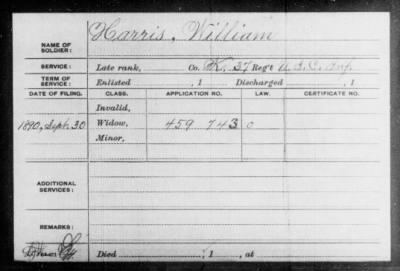 NAME OF SOLDIER: Harris, William
SERVICE: Late rank, Co. K, 37 Reg't U.S.C. Inf.
TERM OF SERVICE: Enlisted , 1 Discharged , 1
DATE OF FILING. CLASS. APPLICATION NO. LAW. CERTIFICATE NO.
Invalid,
1890, Sept. 30 Widow, 459 743
Minor,
ADDITIONAL SERVICES:
REMARKS:
Died , 1 , at